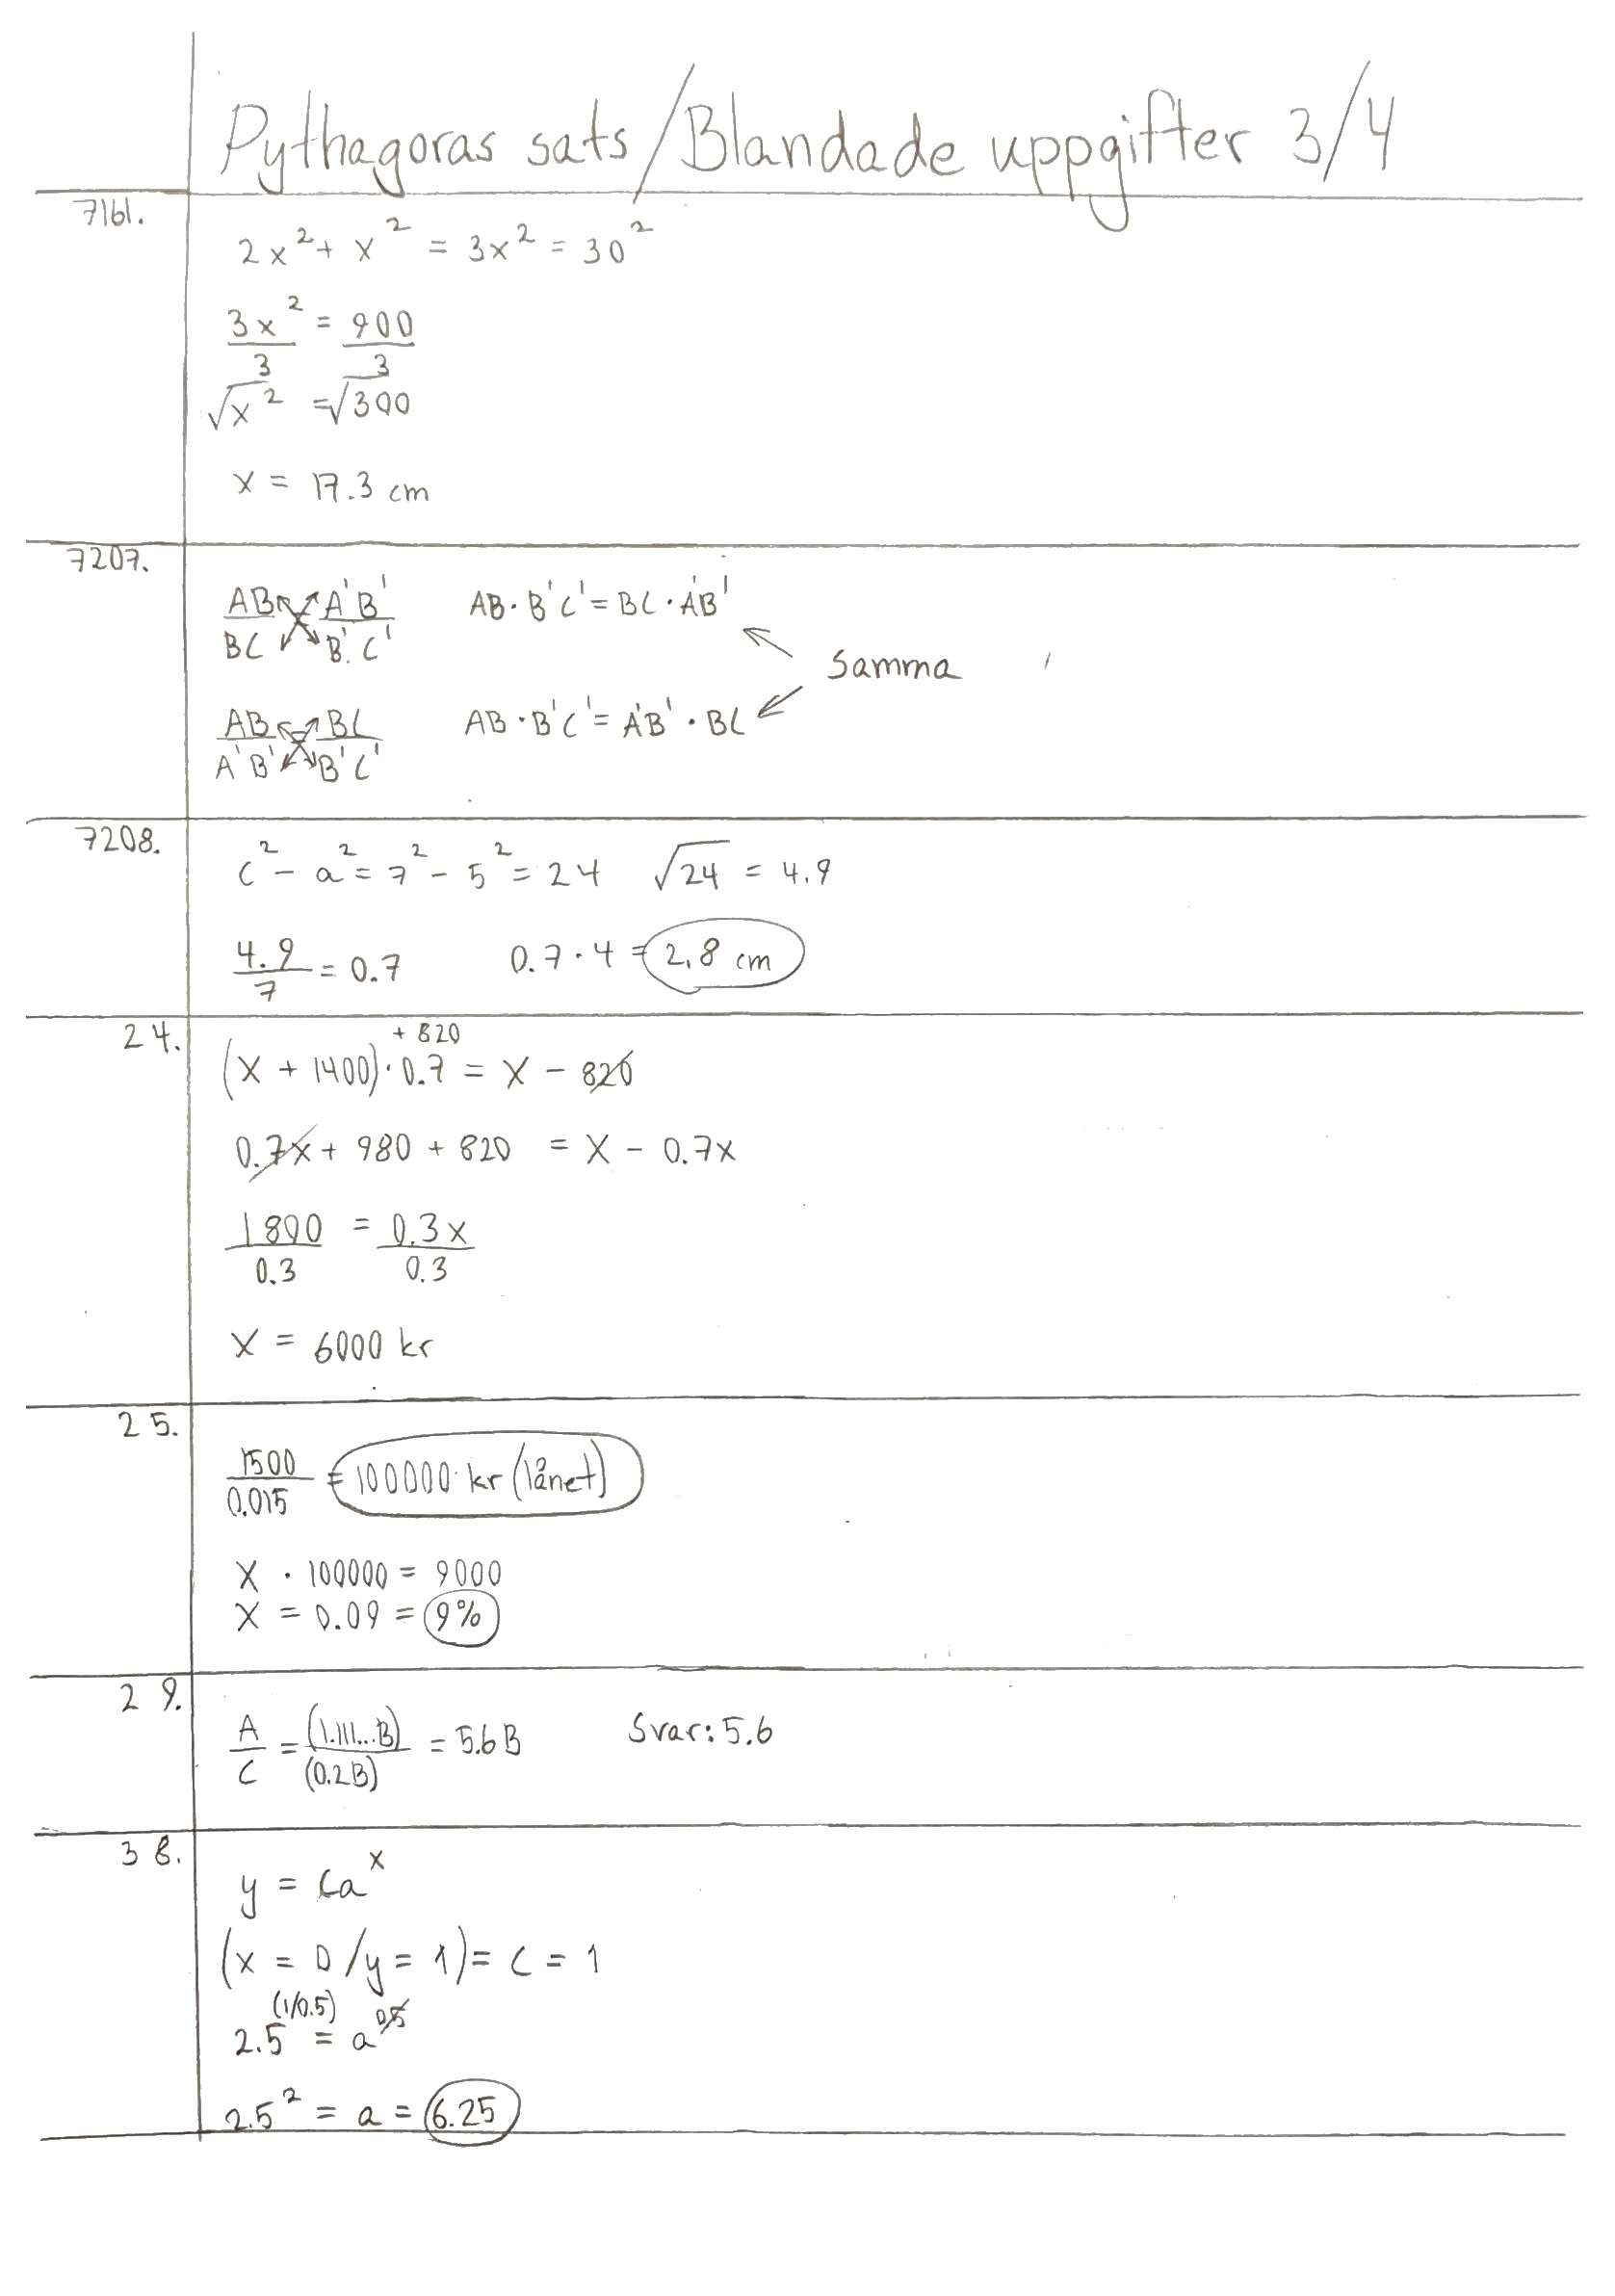 Pythagoras sats/Blandade uppgifter 3/4
7161.
2x² + x² = 3x² = 30²
3x²/3 = 900/3
√x² = √300
x = 17.3 cm
7207.
AB/BC A'B'/B'C' AB · B'C' = BC · A'B'
Samma
AB/A'B' = BC/B'C' AB · B'C' = A'B' · BC
7208.
c² - a² = 7² - 5² = 24 √24 = 4.9
4.9/7 = 0.7 0.7 · 4 = 2,8 cm
24.
+ 820
(x + 1400) · 0.7 = x - 820
0.7x + 980 + 820 = x - 0.7x
1800/0.3 = 0.3x/0.3
x = 6000 kr
25.
1500/0.015 = 100000 kr (lånet)
x · 100000 = 9000
x = 0.09 = 9%
29.
A/C = (1.111...B)/(0.2B) = 5.6B Svar: 5.6
38.
y = Ca^x
(x = 0/y = 1) = C = 1
2.5^(1/0.5) = a^0.5
2.5² = a = 6.25